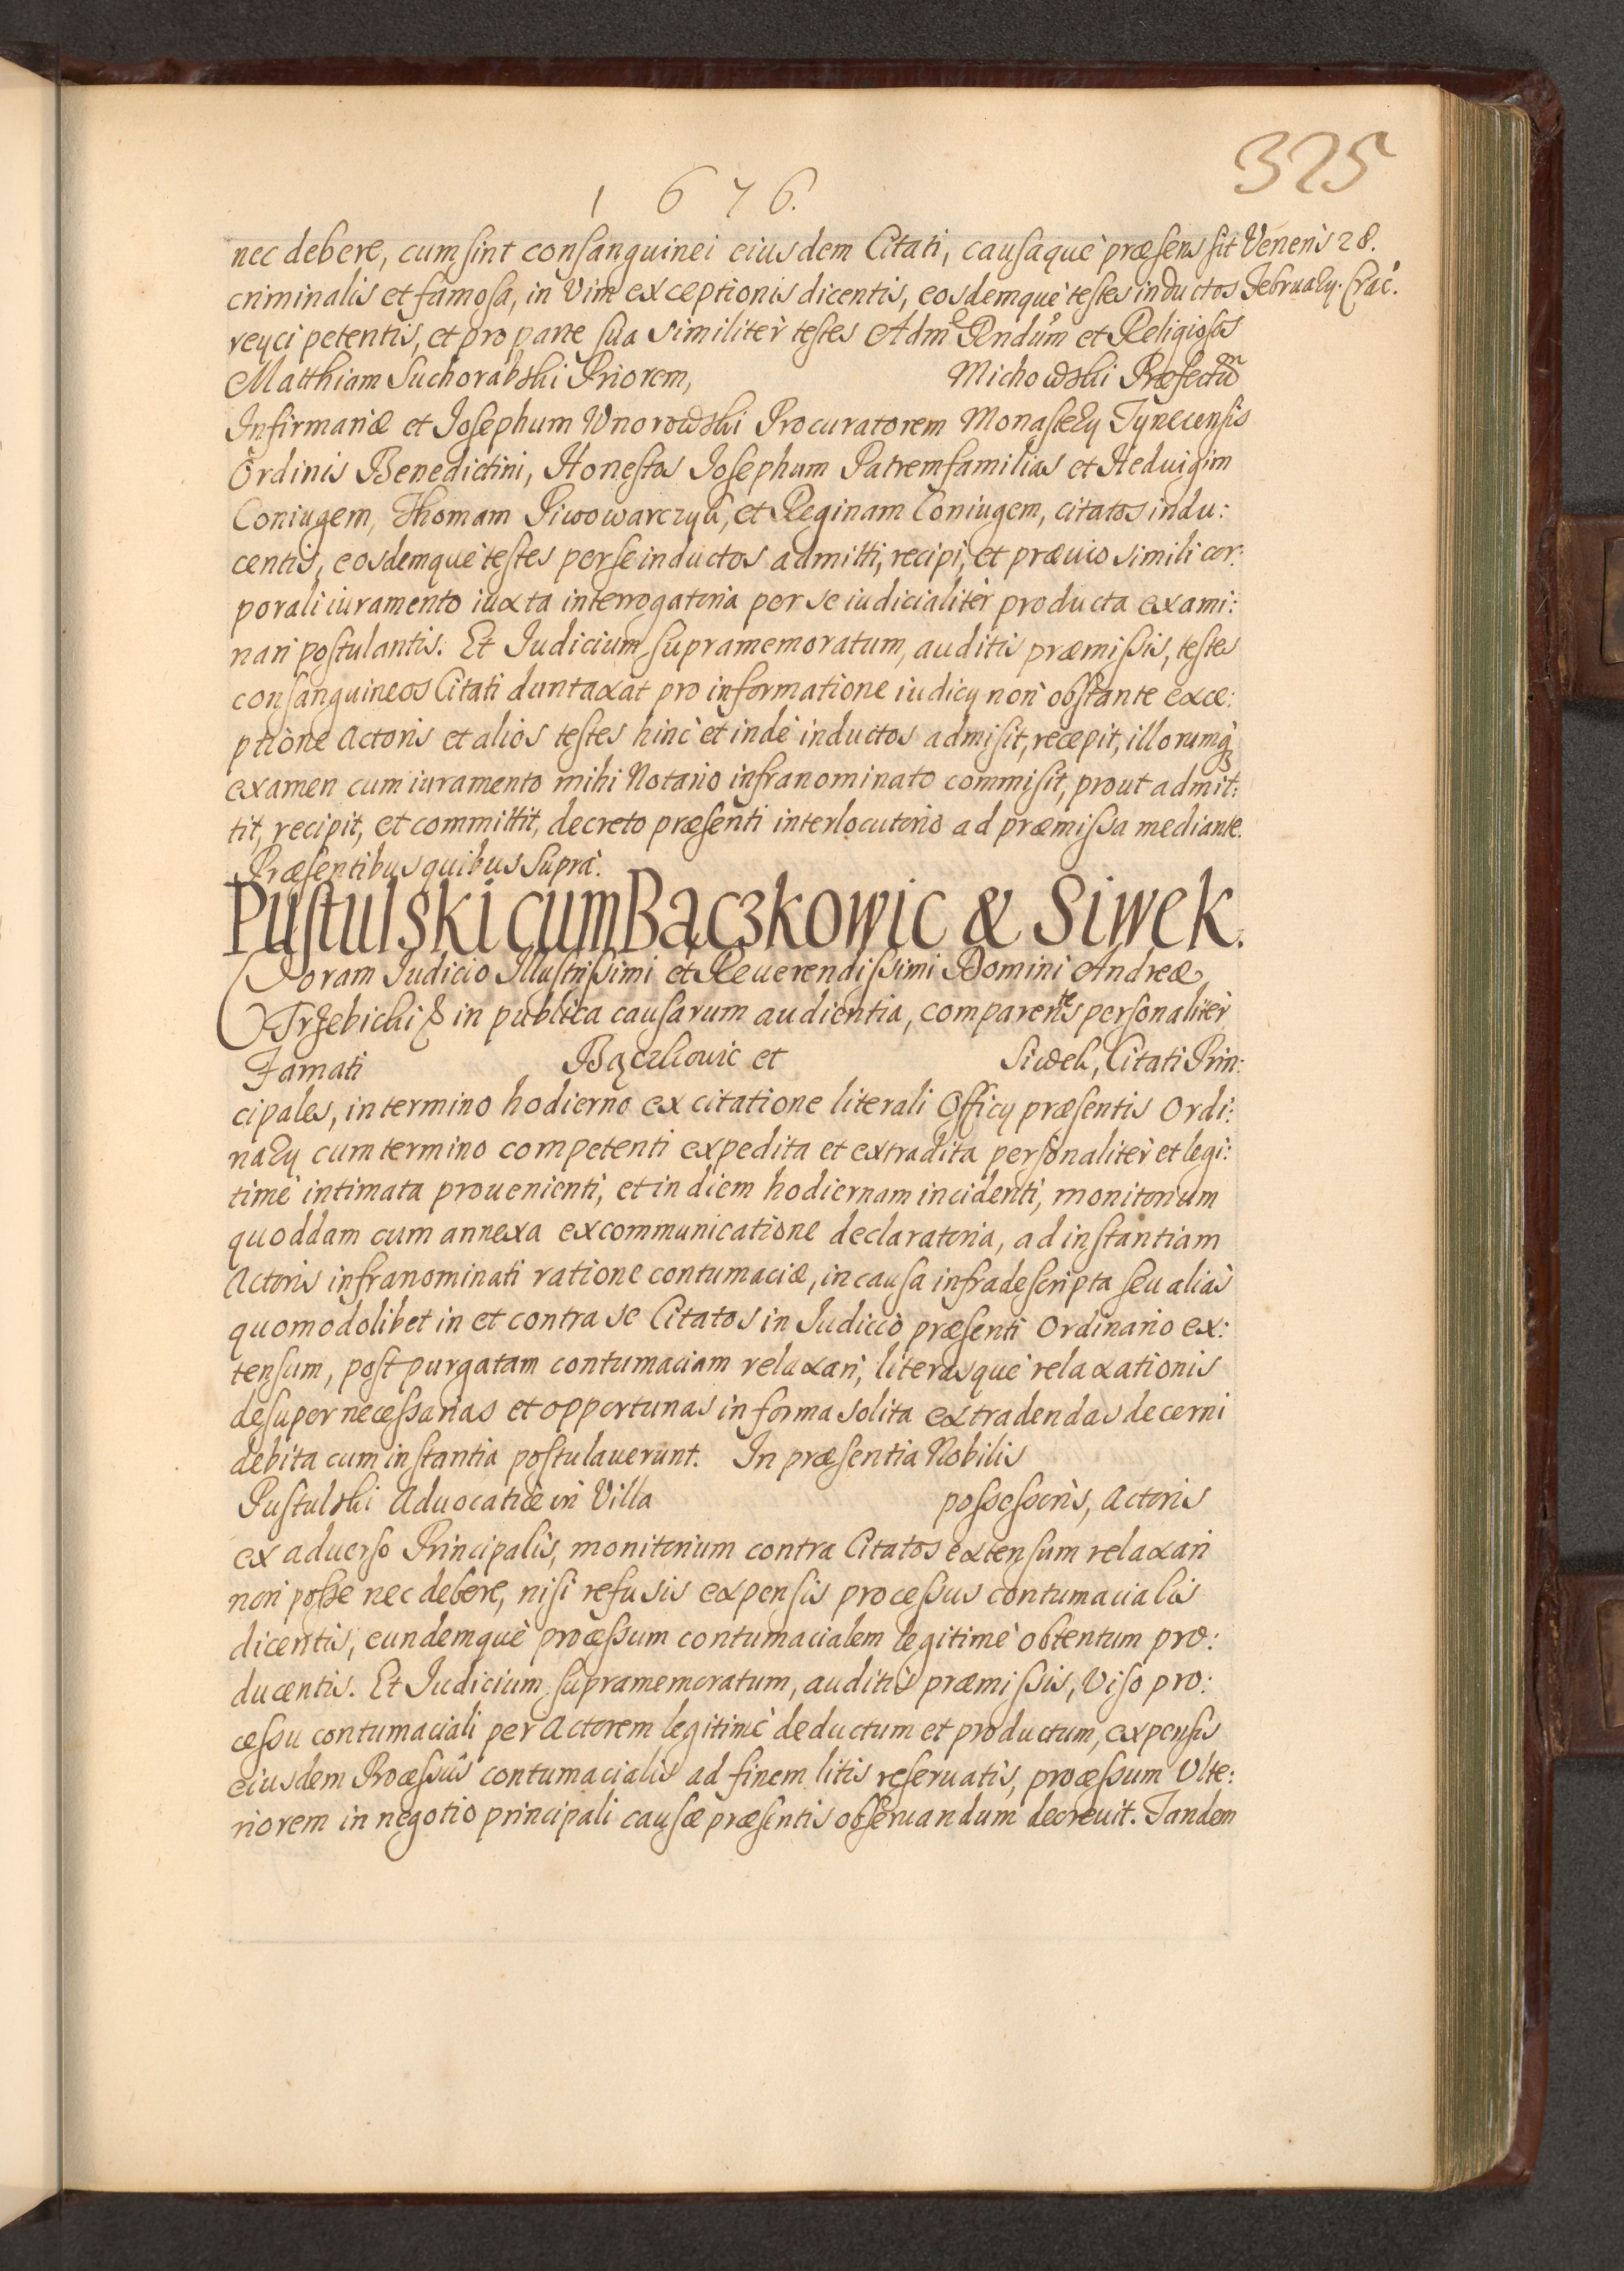 325
1 6 7 6.
nec debere, cum sint consanguinei eiusdem Citati, causaquè præsens sit
Veneris 28.
Februarij. Crac.
criminalis et famosa, in vim exceptionis dicentis, eosdemquè testes inductos
reijci petentis, et pro parte sua similitèr testes Adm Rndum et Religiosos
Matthiam Suchorabski Priorem, Michowski Præfectum
Infirmariæ et Josephum Wnorowski Procuratorem Monasterij Tynecensis
Ordinis Benedictini, Honestos Josephum Patremfamilias et Heduigim
Coniugem, Thomam Piwowarczyk, et Reginam Coniugem, citatos indu:
centis, eosdemquè testes per se inductos admitti, recipi, et præuio simili cor:
porali iuramento iuxta interrogatoria per se iudicialitèr producta exami:
nari postulantis. Et Judicium supramemoratum, auditis præmissis, testes
consanguineos Citati duntaxat pro informatione iudicij non obstante exce:
ptione Actoris et alios testes hinc et indè inductos admisit, recepit, illorumq3
examen cum iuramento mihi Notario infranominato commisit, prout admit:
tit, recipit, et committit, decreto præsenti interlocutorio ad præmissa mediante.
Præsentibus quibus suprà.
Pustulski cum Bączkowic & Siwek.
Coram Judicio Illustrissimi et Reuerendissimi Domini Andreæ
Trzebicki & in publica causarum audientia, comparentes personalitèr
Famati Bączkowic et Siwek, Citati Prin:
cipales, in termino hodierno ex citatione literali Officij præsentis Ordi:
narij cum termino competenti expedita et extradita personalitèr et legi:
timè intimata prouenienti, et in diem hodiernam incidenti, monitorium
quoddam cum annexa excommunicatione declaratoria, ad instantiam
Actoris infranominati ratione contumaciæ, in causa infradescripta seu aliàs
quomodolibet in et contra se Citatos in Judicio præsenti Ordinario ex:
tensum, post purgatam contumaciam relaxari, literasquè relaxationis
desuper necessarias et opportunas in forma solita extradendas decerni
debita cum instantia postulauerunt. In præsentia Nobilis
Pustulski Aduocatiæ in Villa possessoris, Actoris
ex aduerso Principalis, monitorium contra Citatos extensum relaxari
non posse nec debere, nisi refusis expensis processus contumacialis
dicentis, eundemquè processum contumacialem legitimè obtentum pro:
ducentis. Et Judicium supramemoratum, auditis præmissis, Viso pro:
cessu contumaciali per Actorem legitimè deductum et productum, expensis
eiusdem Processûs contumacialis ad finem litis reseruatis, processum Ulte:
riorem in negotio principali causæ præsentis obseruandum decreuit. Tandem